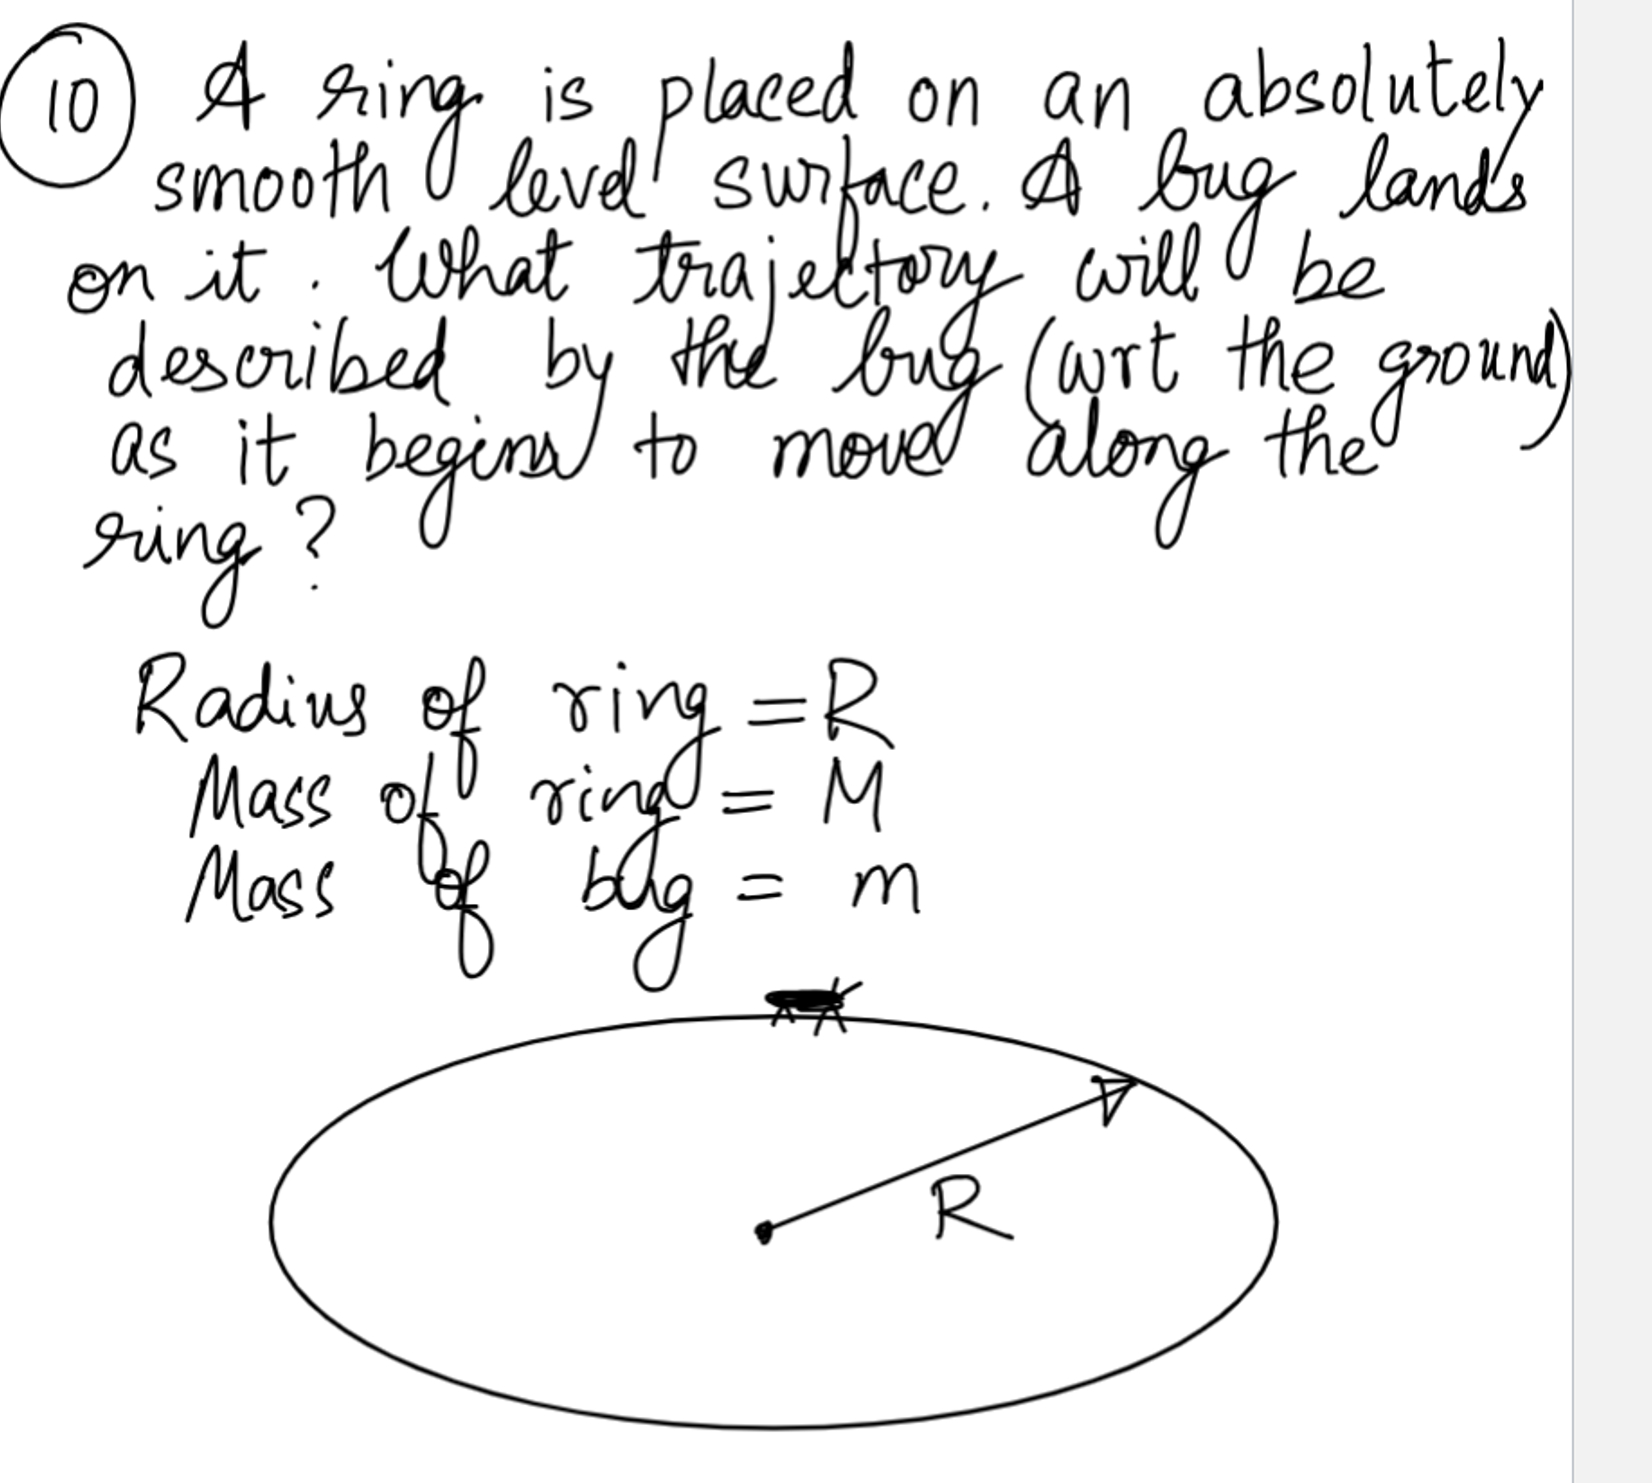 10 A ring is placed on an absolutely
smooth level surface. A bug lands
on it. What trajectory will be
described by the bug (wrt the ground)
as it begins to move along the
ring?
Radius of ring = R
Mass of ring = M
Mass of bug = m
R